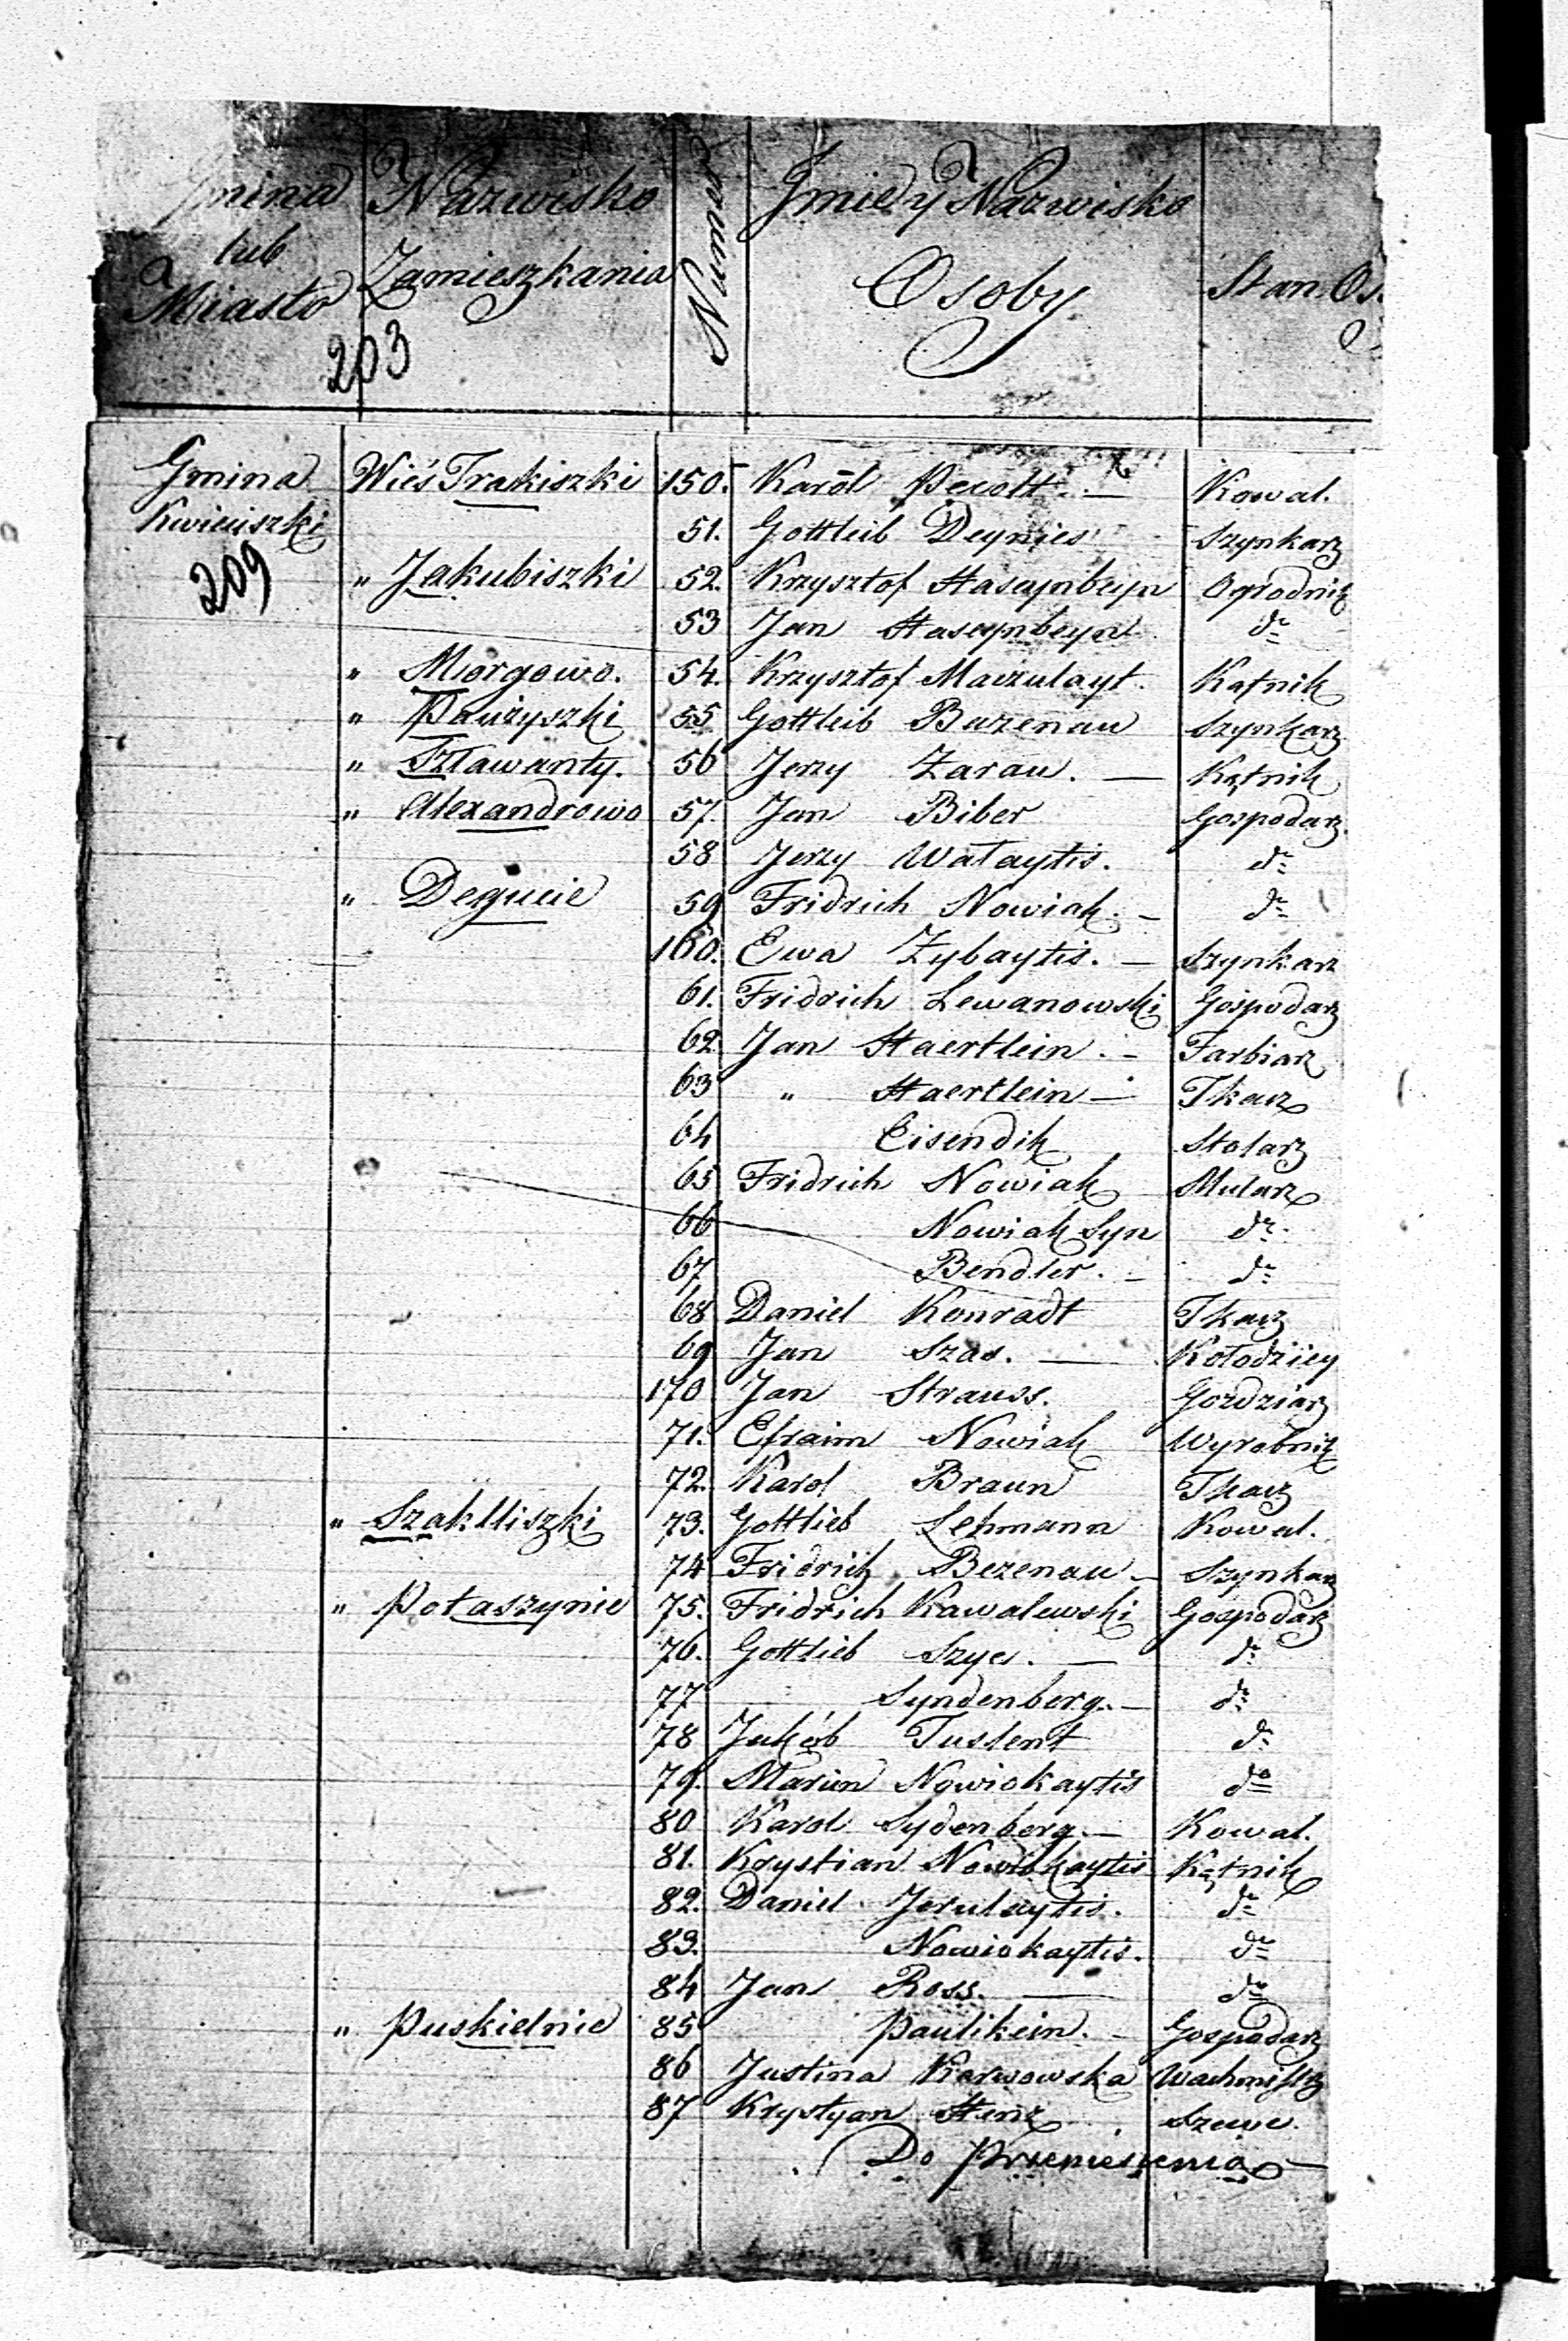 Gmina lub Miasto | Nazwisko Zamieszkania | Numer | Jmie y Nazwisko Osoby | Stan Os
203
Gmina | Wieś Trakiszki | 150. | Karól | Kowal.
Kwieciszki | 51. | Gottleib Deynies | Szynkarz
209 | " Jakubiszki | 52. | Krzysztof | Ogrodnik
53 | Jan | do
" Morgowo. | 54. | Krzysztof Maczulayt. | Kątnik
" Pauzyszki | 55 | Gottleib Buzenau | Szynkarz
" Szławanty. | 56 | Jerzy Zarau. — | Kątnik
" Alexandrowo | 57. | Jan Biber | Gospodarz
58 | Jerzy Wałaytis. | do
" Degucie | 59 | Fridrich Nowiak. — | do
160. | Ewa Zybaytis. — | Szynkarz
61. | Fridrich Lewanowski | Gospodarz
62 | Jan Haertlein. — | Farbiarz
63 | " Haertlein — | Tkacz
64 | Eisendik | Stolarz
65 | Fridrich Nowiak | Mularz
66 | Nowiak Syn | do
67 | Bendler. — | do
68 | Daniel Konradt | Tkacz
69 | Jan Szas. — | Kołodziey
170 | Jan Strauss. | Gozdziarz
71. | Efraim Nowiak | Wyrobnik
72. | Karol Braun | Tkacz
" Szaklliszki | 73. | Gottlieb Lehmann | Kowal.
74 | Fridrich Bezenau — | Szynkarz
" Potaszynie | 75. | Fridrich Kawalewski | Gospodarz
76. | Gottlieb — | do
77 | Syndenberg. — | do
78 | Jakób Tuslent | do
79. | Marian Nowiokaytis | do
80 | Karol Sydenberg. — | Kowal.
81. | Krystian Nowiokaytis | Kątnik
82. | Daniel Jerulaytis. | do
83. | Nowiokaytis. | do
84 | Jan Ross. — | do
" Puskielnie | 85 | Paulikein. — | Gospodarz
86 | Justina Karwowska | Wachmistrz
87 | Krystyan Henz | Szewc.
Do Przeniesienia —